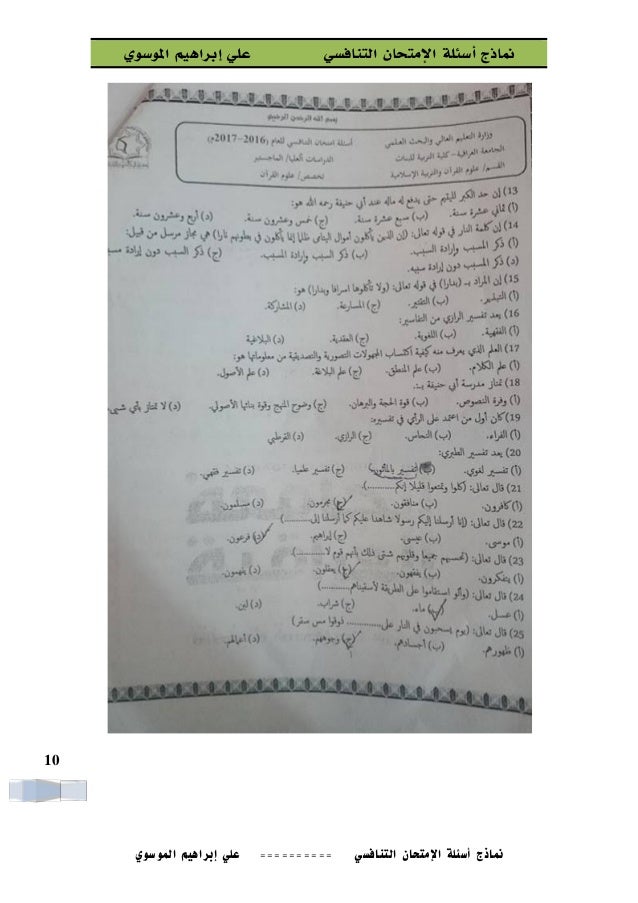 نماذج أسئلة الإمتحان التنافسي علي إبراهيم الموسوي
بسم الله الرحمن الرحيم
وزارة التعليم العالي والبحث العلمي
الجامعة العراقية – كلية التربية للبنات
القسم/ علوم القرآن والتربية الإسلامية
أسئلة امتحان التنافسي للعام (2016-2017م)
الدراسات العليا/ الماجستير
تخصص/ علوم القرآن
13) إن حد الكبر لليتيم حتى يدفع له ماله عند أبي حنيفة رحمه الله هو:
(أ) ثماني عشرة سنة. (ب) سبع عشرة سنة. (ج) خمس وعشرون سنة. (د) أربع وعشرون سنة.
14) إن كلمة النار في قوله تعالى: (إن الذين يأكلون أموال اليتامى ظلما إنما يأكلون في بطونهم نارا) هي مجاز مرسل من قبيل:
(أ) ذكر المسبب وإرادة السبب. (ب) ذكر السبب وإرادة المسبب. (ج) ذكر السبب دون إرادة
(د) ذكر المسبب دون إرادة سببه.
15) إن المراد بـ (بدارا) في قوله تعالى: (ولا تأكلوها اسرافا وبدارا) هو:
(أ) التبذير. (ب) التقتير. (ج) المسارعة. (د) المشاركة.
16) يعد تفسير الرازي من التفاسير:
(أ) الفقهية. (ب) اللغوية. (ج) العقدية. (د) البلاغية
17) العلم الذي يعرف منه كيفية اكتساب المجهولات التصورية والتصديقية من معلوماتها هو:
(أ) علم الكلام. (ب) علم المنطق. (ج) علم البلاغة. (د) علم الأصول.
18) تمتاز مدرسة أبي حنيفة بـ:
(أ) وفرة النصوص. (ب) قوة الحجة والبرهان. (ج) وضوح المنهج وقوة بنائها الأصولي. (د) لا تمتاز بأي شيء.
19) كان أول من اعتمد على الرأي في تفسيره:
(أ) الفراء. (ب) النحاس. (ج) الرازي. (د) القرطبي
20) يعد تفسير الطبري:
(أ) تفسير لغوي. (ب) تفسير بالمأثور. (ج) تفسير علميا. (د) تفسير فقهي.
21) قال تعالى: (كلوا وتمتعوا قليلا إنكم............).
(أ) كافرون. (ب) منافقون. (ج) مجرمون. (د) مسلمون.
22) قال تعالى: (إنا أرسلنا إليكم رسولا شاهدا عليكم كما أرسلنا إلى...........)
(أ) موسى. (ب) عيسى. (ج) إبراهيم. (د) فرعون.
23) قال تعالى: (تحسبهم جميعا وقلوبهم شتى ذلك بأنهم قوم لا............)
(أ) يتفكرون. (ب) يفقهون. (ج) يعقلون. (د) يفهمون.
24) قال تعالى: (وألو استقاموا على الطريقة لأسقيناهم............)
(أ) عسل. (ب) ماء. (ج) شراب. (د) لبن.
25) قال تعالى: (يوم يسحبون في النار على.............. ذوقوا مس سقر)
(أ) ظهورهم. (ب) أجسادهم. (ج) وجوههم. (د) أعمالهم.
10
نماذج أسئلة الإمتحان التنافسي ========== علي إبراهيم الموسوي